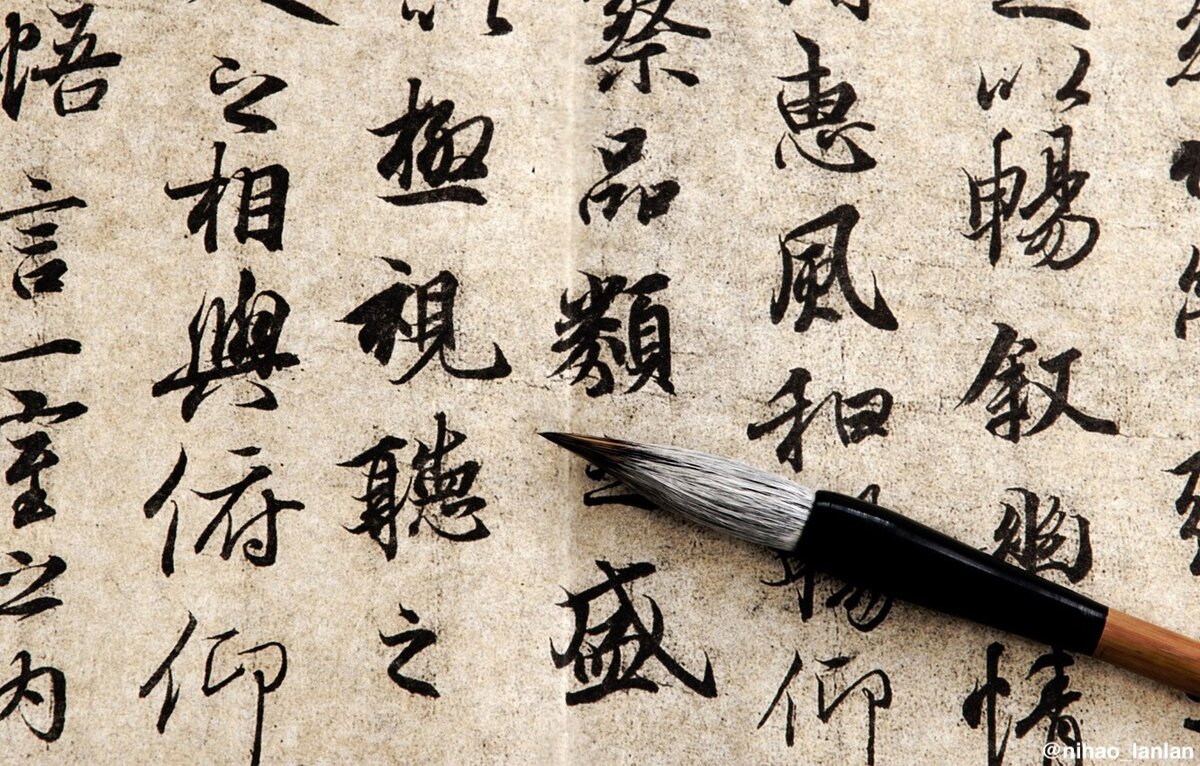 以暢叙幽情
惠風和暢仰
察品類之盛
以極視聽之
之相與俯仰
悟言一室之内
@nihao_lanlan